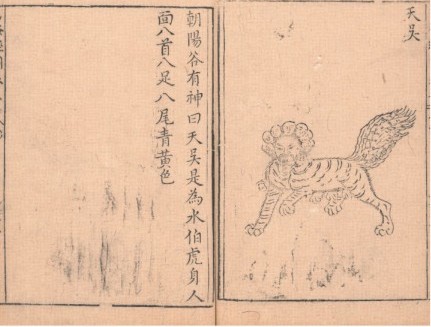 天吴
朝陽谷有神曰天吴是為水伯虎身人
面八首八足八尾青黄色